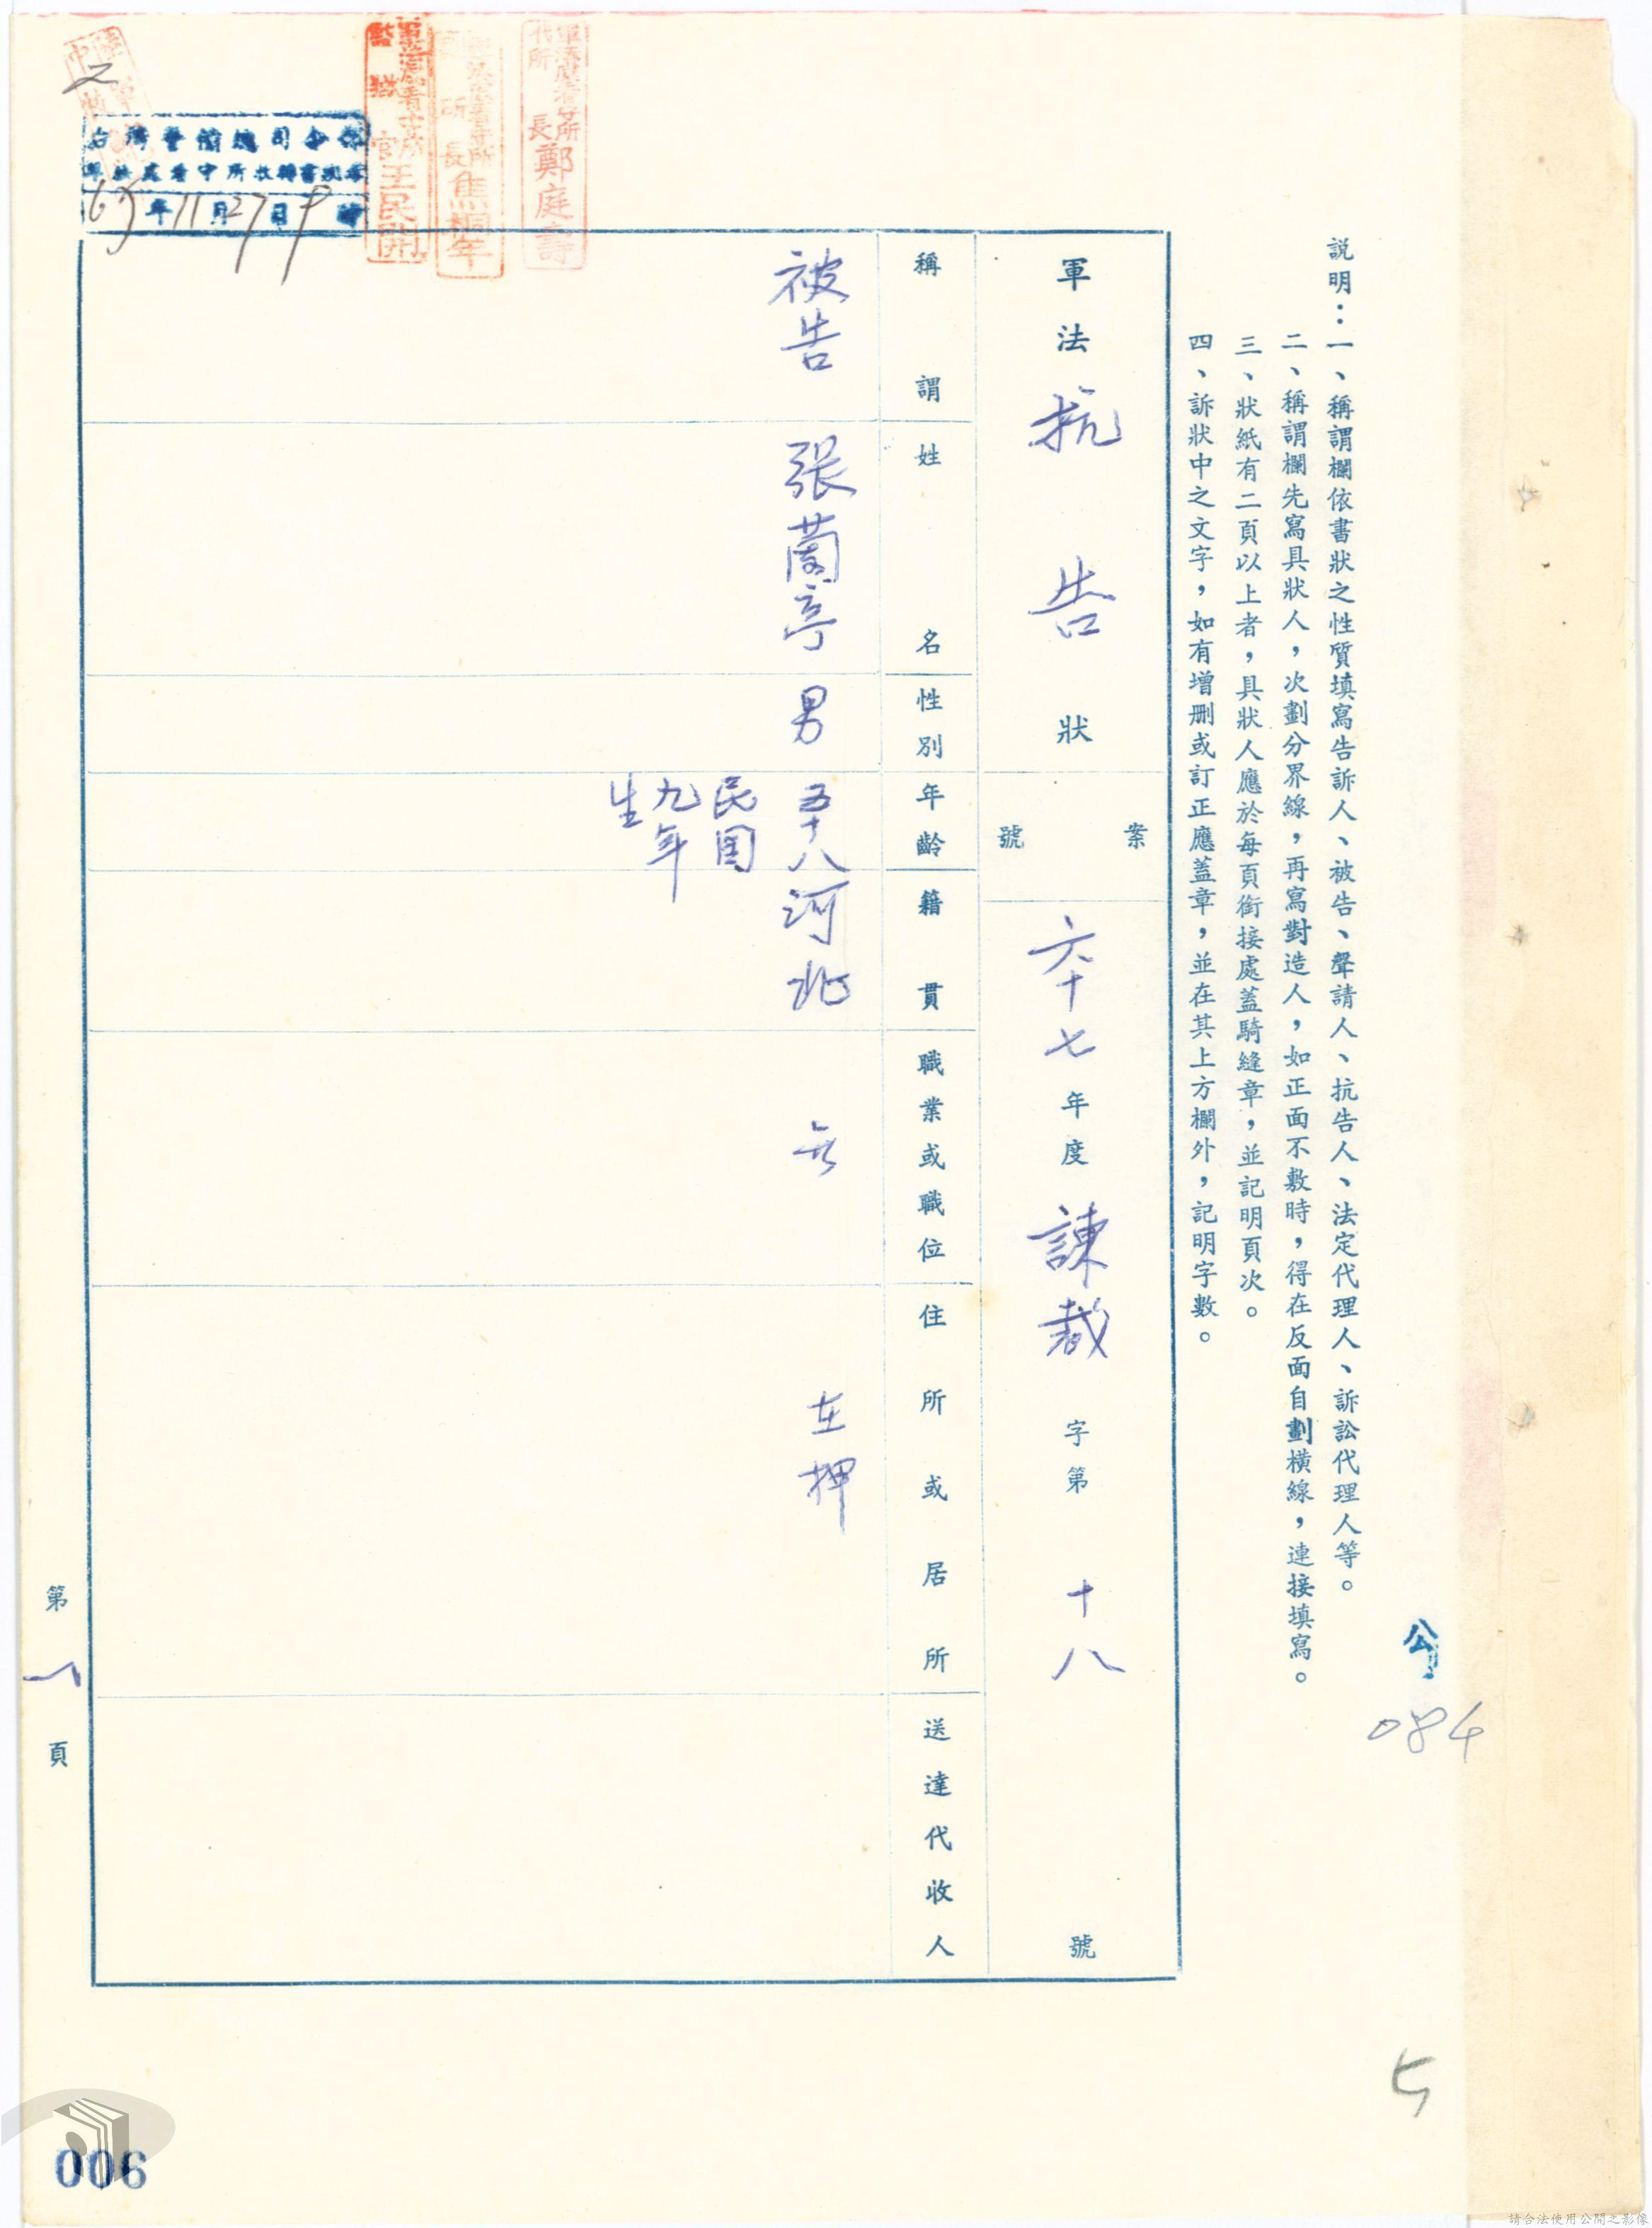 說明：一、稱謂欄依書狀之性質填寫告訴人、被告、聲請人、抗告人、法定代理人、訴訟代理人等。
二、稱謂欄先寫具狀人，次劃分界線，再寫對造人，如正面不敷時，得在反面自劃橫線，連接填寫。
三、狀紙有二頁以上者，具狀人應於每頁銜接處蓋騎縫章，並記明頁次。
四、訴狀中之文字，如有增刪或訂正應蓋章，並在其上方欄外，記明字數。
公
084
軍法抗告狀
案號
六十七年度諫裁字第十八號
稱謂
姓名
性別
年齡
籍貫
職業或職位
住所或居所
送達代收人
被告
張蘭亭
男
五十八
民國
九年
生
河北
無
在押
代所長鄭庭壽
所長焦桐年
監獄官王民開
年11月27日
第
頁
006
請合法使用公開之影像